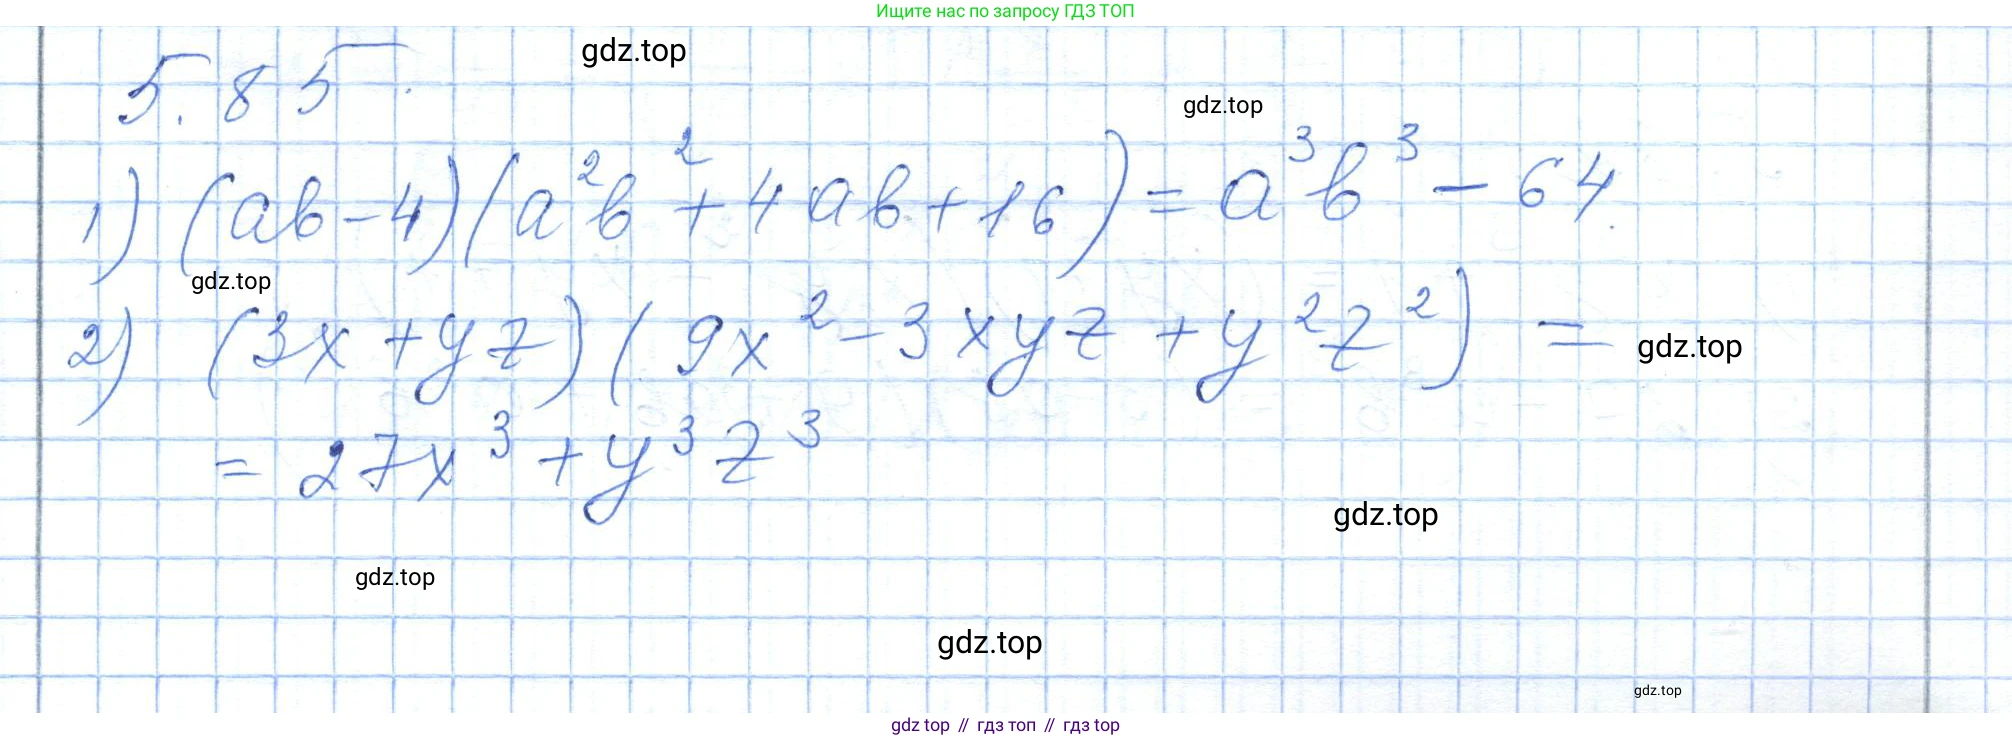 Ищите нас по запросу ГДЗ ТОП
gdz.top
5.85.
gdz.top
1) (ab-4)(a²b²+4ab+16)=a³b³-64.
gdz.top
2) (3x+yz)(9x²-3xyz+y²z²)=
gdz.top
=27x³+y³z³
gdz.top
gdz.top
gdz.top
gdz.top
gdz top // гдз топ // гдз top